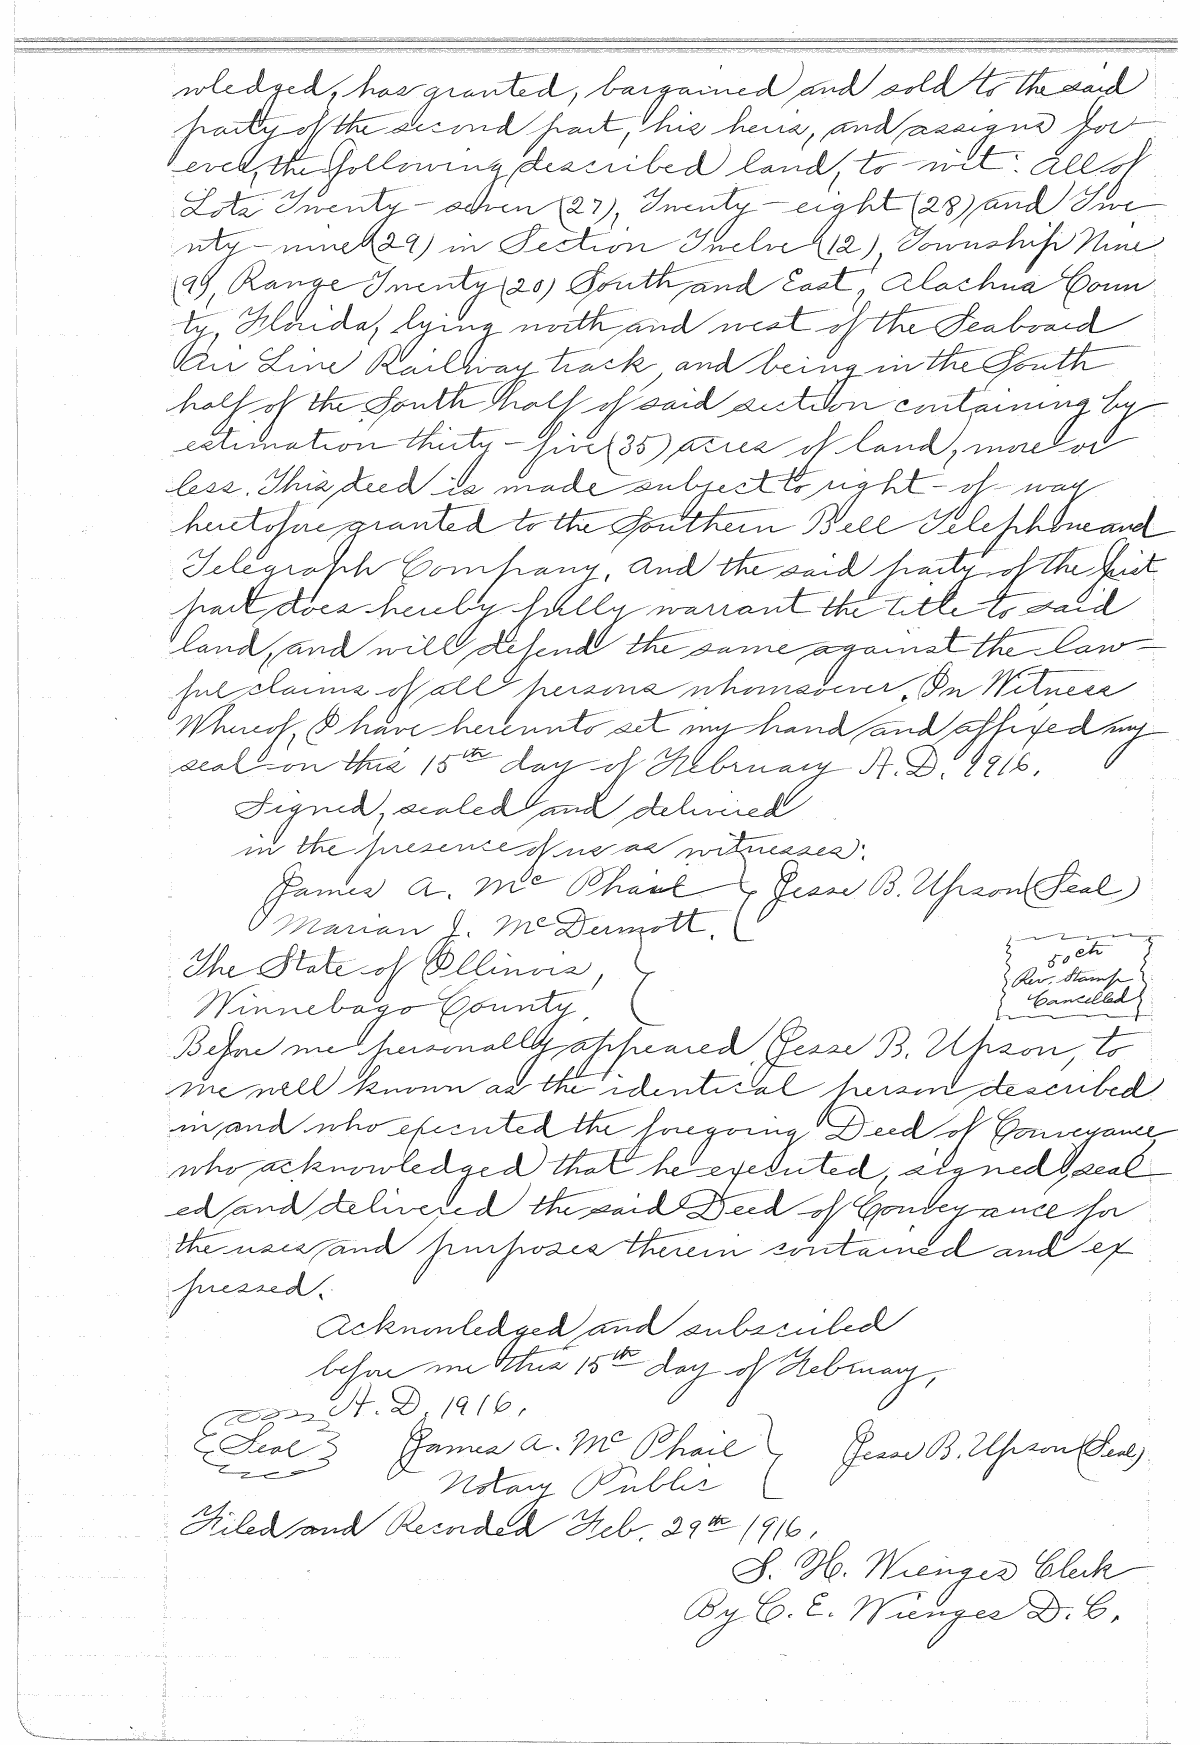 wledged, has granted, bargained and sold to the said
party of the second part, his heirs, and assigns for
ever, the following described land, to wit: All of
Lots Twenty-seven (27), Twenty-eight (28) and Twe
nty-nine (29) in Section Twelve (12), Township Nine
(9), Range Twenty (20) South and East, Alachua Coun
ty, Florida, lying north and west of the Seaboard
Air Line Railway track, and being in the South
half of the South half of said section containing by
estimation thirty-five (35) acres of land, more or
less. This deed is made subject to right-of-way
heretofore granted to the Southern Bell Telephone and
Telegraph Company. And the said party of the first
part does hereby fully warrant the title to said
land, and will defend the same against the law-
ful claims of all persons whomsoever. In Witness
Whereof, I have hereunto set my hand and affixed my
seal on this 15th day of February A. D. 1916.
Signed, sealed and delivered
in the presence of us as witnesses:
James A. McPhail } Jesse B. Upson (Seal)
Marian J. McDermott.
The State of Illinois,
Winnebago County.
50 cts
Rev. Stamp
Cancelled
Before me personally appeared Jesse B. Upson, to
me well known as the identical person described
in and who executed the foregoing Deed of Conveyance
who acknowledged that he executed, signed, seal
ed and delivered the said Deed of Conveyance for
the uses and purposes therein contained and ex
pressed.
Acknowledged and subscribed
before me this 15th day of February,
A. D. 1916.
Seal James A. McPhail } Jesse B. Upson (Seal)
Notary Public
Filed and Recorded Feb. 29th 1916.
S. H. Wienges Clerk
By C. E. Wienges D. C.